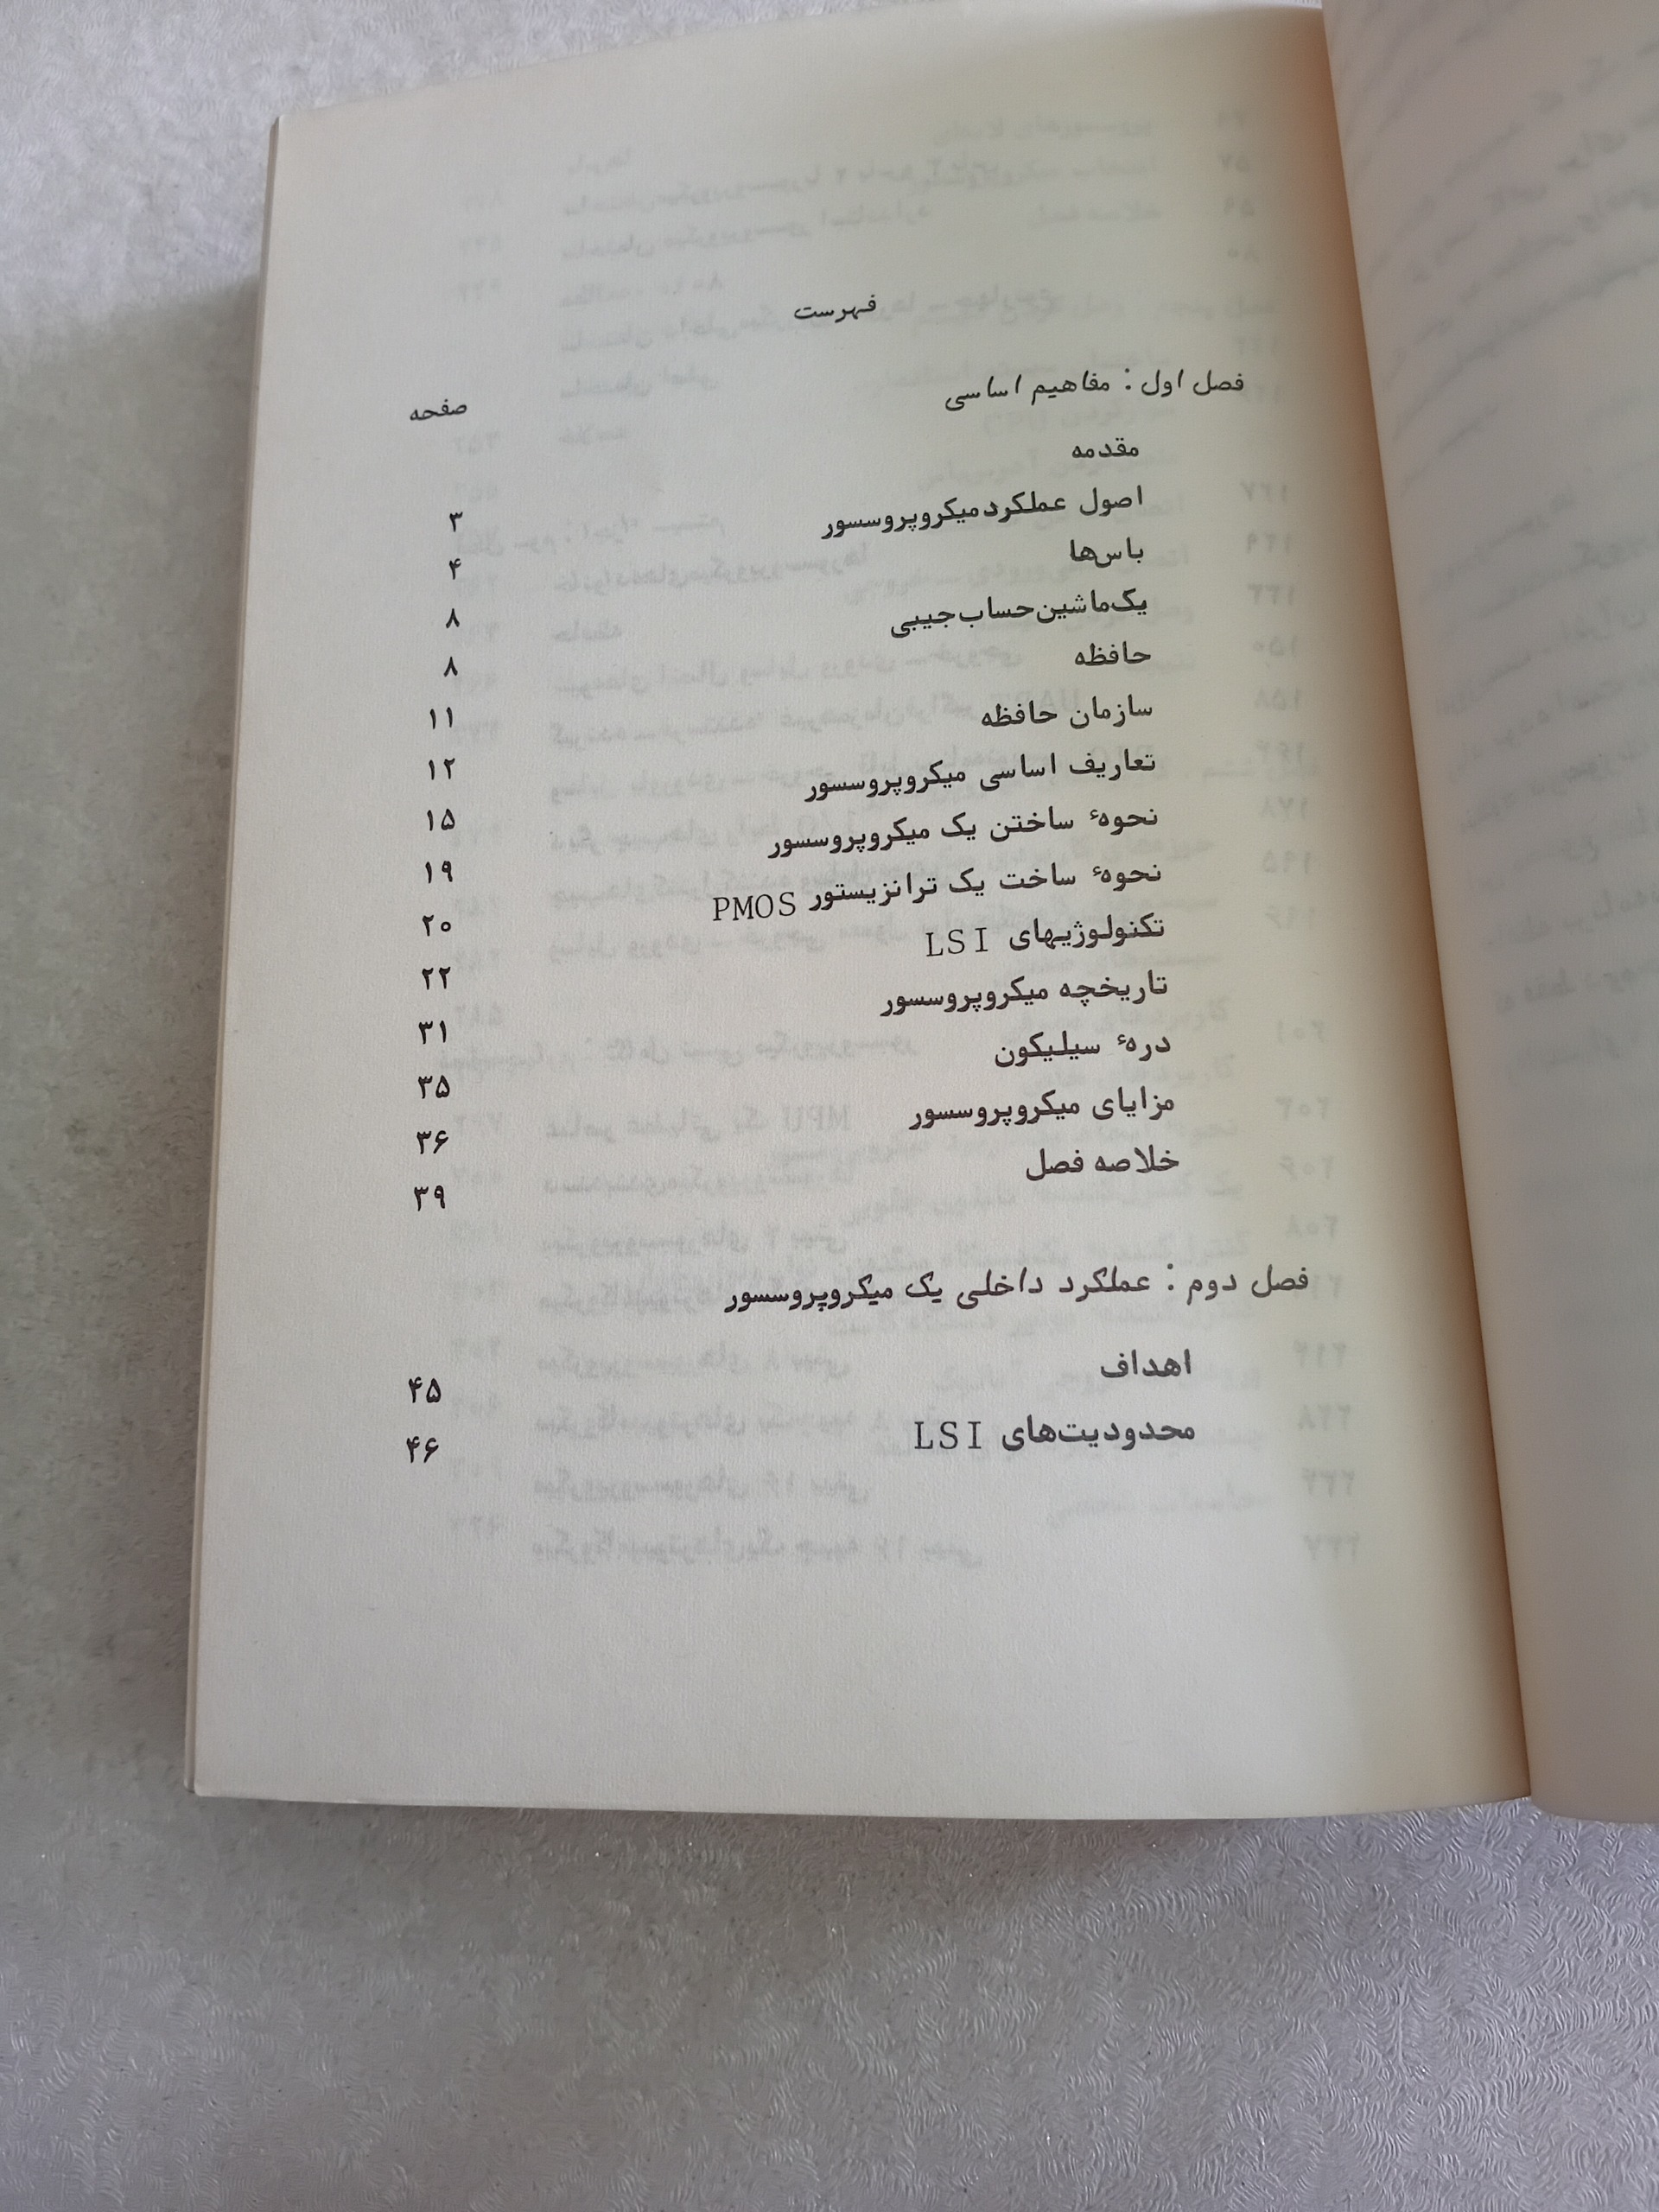 فهرست
فصل اول : مفاهیم اساسی
صفحه
مقدمه ۳
اصول عملکرد میکروپروسسور ۴
باس‌ها ۸
یک ماشین حساب جیبی ۸
حافظه ۱۱
سازمان حافظه ۱۲
تعاریف اساسی میکروپروسسور ۱۵
نحوهٔ ساختن یک میکروپروسسور ۱۹
نحوهٔ ساخت یک ترانزیستور PMOS ۲۰
تکنولوژیهای LSI ۲۲
تاریخچه میکروپروسسور ۳۱
درهٔ سیلیکون ۳۵
مزایای میکروپروسسور ۳۶
خلاصه فصل ۳۹
فصل دوم : عملکرد داخلی یک میکروپروسسور
اهداف ۴۵
محدودیت‌های LSI ۴۶